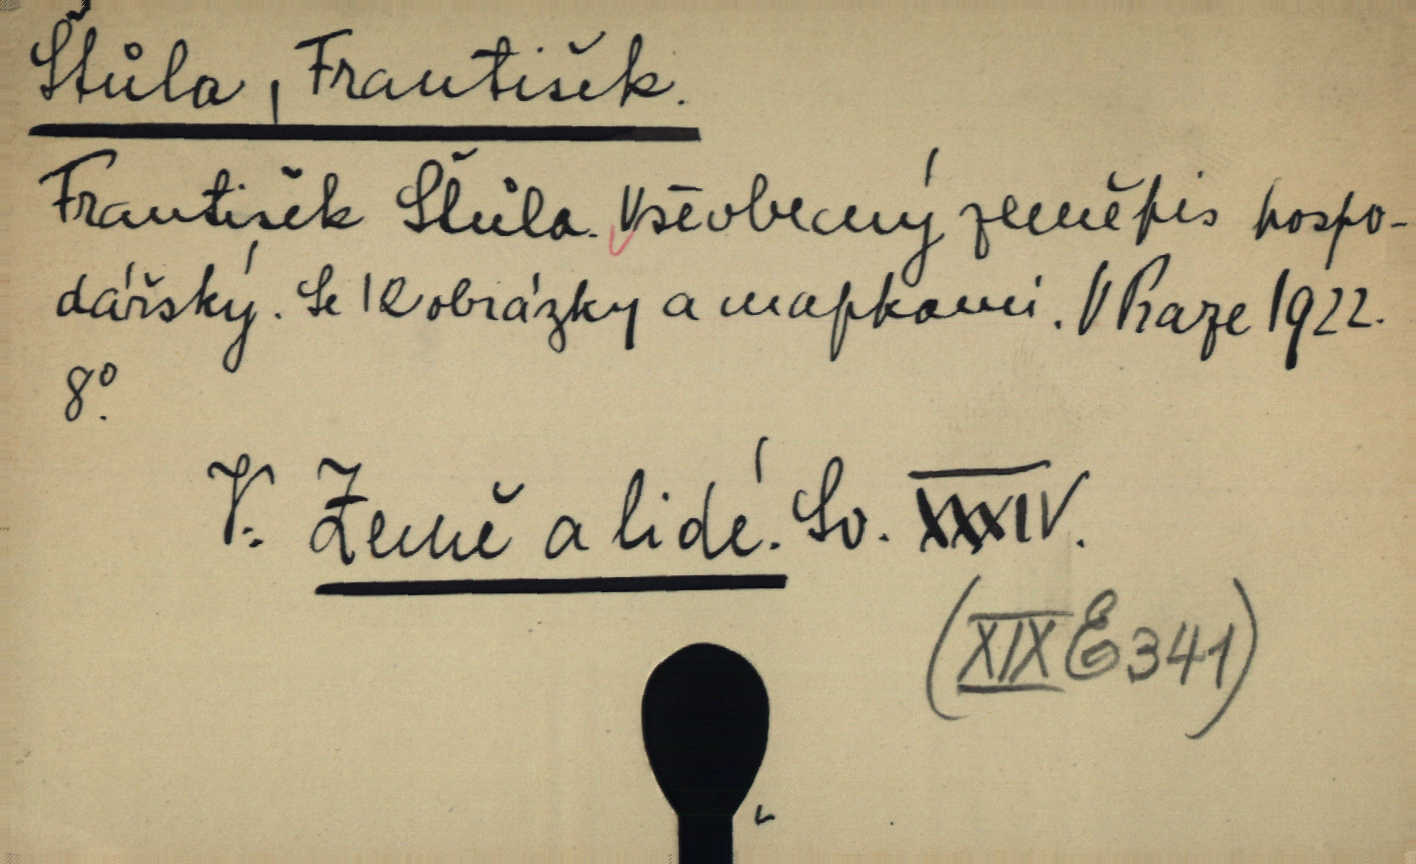 Štůla, František.
František Štůla. Všeobecný zeměpis hospo-
dářský. Se 12 obrázky a mapkami. V Praze 1922.
8º.
V. Země a lidé. Sv. XXXIV.
(XIX E 341)